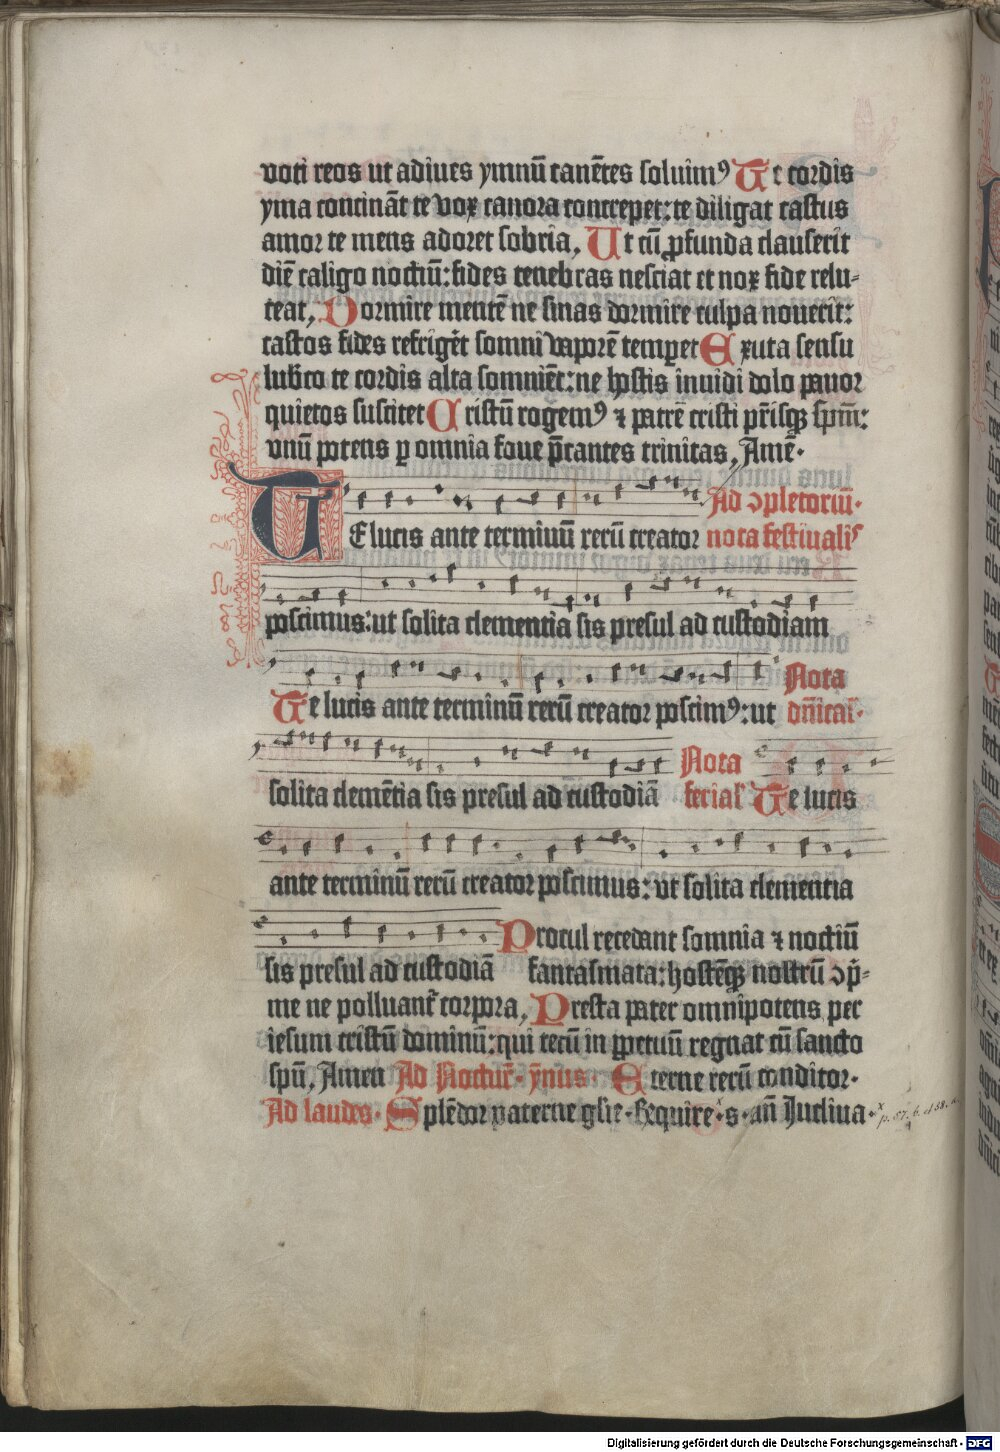 voti reos ut adiuves ymnū canētes soluimꝰ Te cordis
yma concināt te vox canora concrepet: te diligat castus
amor te mens adoret sobria, Ut cū ꝓfunda clauserit
diē caligo noctiū: fides tenebras nesciat et nox fide relu-
ceat, Dormire mentē ne sinas dormire culpa noverit:
castos fides refrigēt somni vaporē temperet Exuta sensu
lubrico te cordis alta somniēt: ne hostis invidi dolo pavor
quietos suscitet Cristū rogemꝰ ⁊ patrē cristi pr̄isqꝫ spm̄:
unū potens ꝑ omnia fove p̄cantes trinitas, Amē·
Ad ↄpletoriū·
TE lucis ante terminū rerū creator nota festivaliꝭ
poscimus: ut solita clementia sis presul ad custodiam
Nota
Te lucis ante terminū rerū creator poscimꝰ: ut dn̄icał·
Nota
solita clemētia sis presul ad custodiā feriał Te lucis
ante terminū rerū creator poscimus: ut solita clementia
Procul recedant somnia ⁊ noctiū
sis presul ad custodiā fantasmata: hostēqꝫ nostrū ↄp̄-
me ne polluant᷑ corpora, Presta pater omnipotens per
iesum cristū dominū: qui tecū in ꝑpetuū regnat cū sancto
spū, Amen Ad Noctur̄· ȳnus· Eterne rerū conditor·
Ad laudes· Splēdor paterne glīe· Require · s · an̄ Inclina · x p. 57. b. et 58. a.
Digitalisierung gefördert durch die Deutsche Forschungsgemeinschaft - DFG